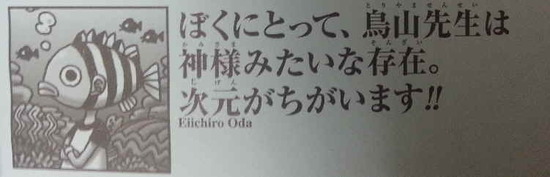 ぼくにとって、鳥山先生は
神様みたいな存在。
次元がちがいます!!
Eiichiro Oda